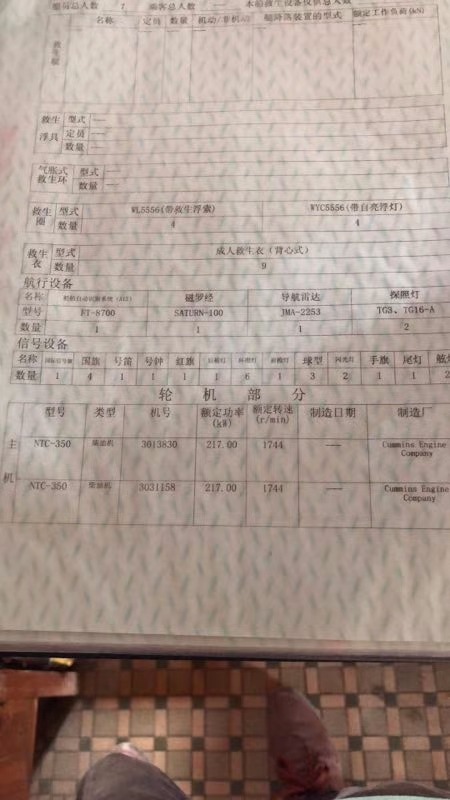 船员总人数 7 乘客总人数 — 本船救生设备仅供总人数
救生艇 名称 定员 数量 机动/非机动 艇降落装置的型式 额定工作负荷(kN)
救生浮具 型式 —
定员 —
数量 —
气胀式救生环 型式 —
数量 —
救生圈 型式 WL5556(带救生浮索) WYC5556(带自亮浮灯)
数量 4 4
救生衣 型式 成人救生衣（背心式）
数量 9
航行设备
名称 船舶自动识别系统（AIS） 磁罗经 导航雷达 探照灯
型号 FT-8700 SATURN-100 JMA-2253 TG3、TG16-A
数量 1 1 1 2
信号设备
名称 国际信号旗 国旗 号笛 号钟 红旗 环照灯 前桅灯 球型 闪光灯 手旗 尾灯
数量 1 4 1 1 1 1 6 1 3 2 1 1 2
轮机部分
型号 类型 机号 额定功率(kW) 额定转速(r/min) 制造日期 制造厂
主机 NTC-350 柴油机 3013830 217.00 1744 — Cummins Engine Company
NTC-350 柴油机 3031158 217.00 1744 — Cummins Engine Company